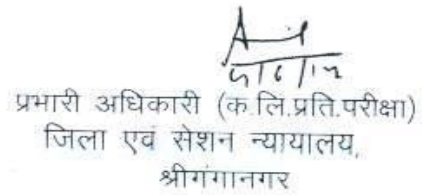 5/6/12
प्रभारी अधिकारी (क.लि.प्रति.परीक्षा)
जिला एवं सेशन न्यायालय,
श्रीगंगानगर